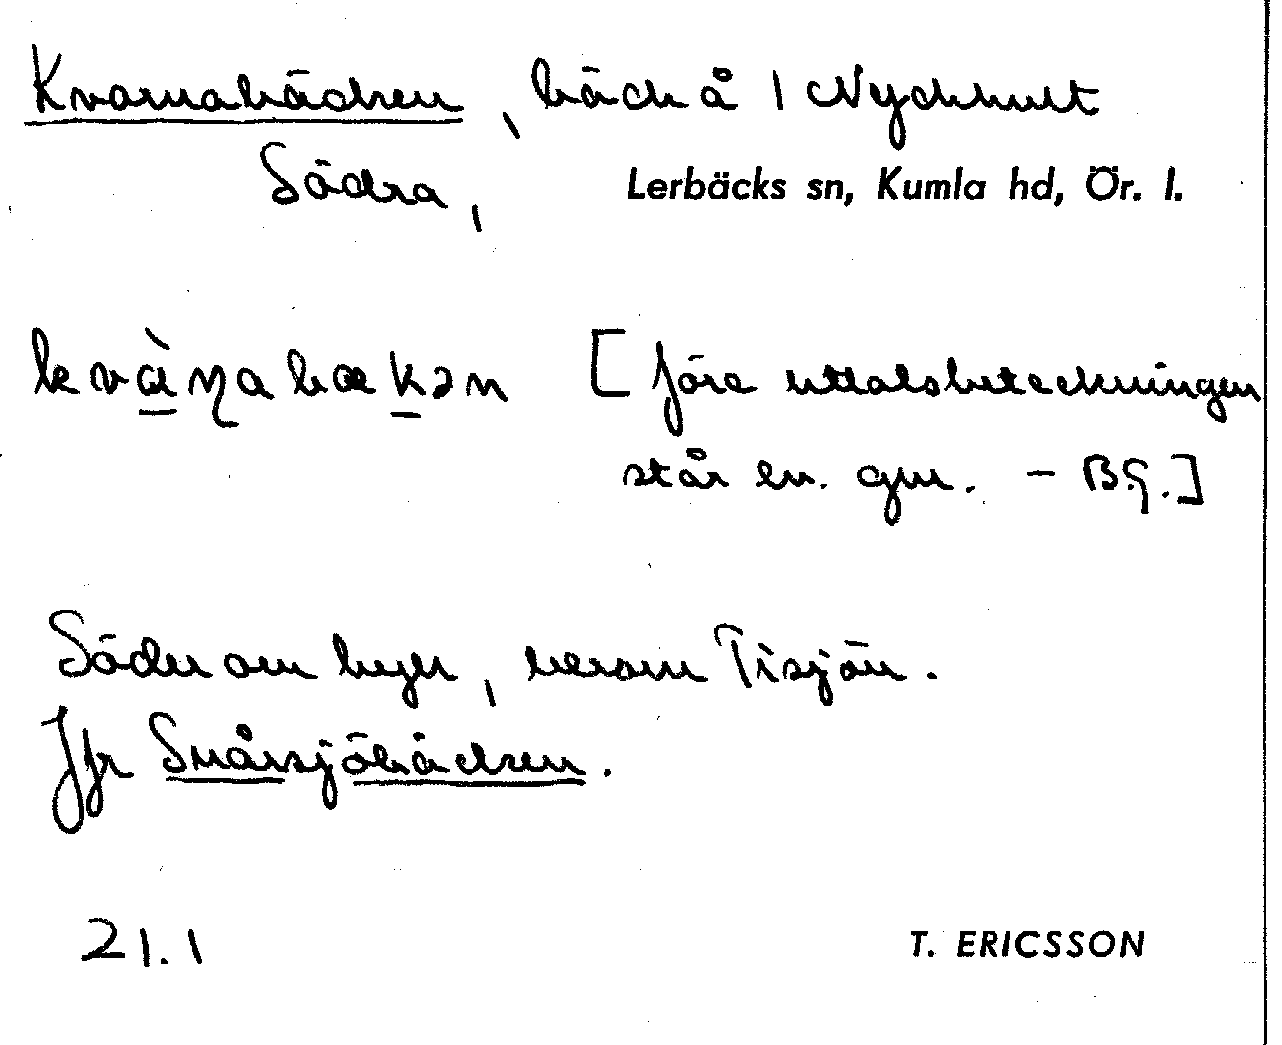 Kvarnabäcken, bäck å 1 Nyckhult
Södra,
Lerbäcks sn, Kumla hd, Ör. l.
kvàŋabækən [före uttalsbeteckningen
står en. gm. – B.G.]
Söder om byn, norr om Tisjön.
Jfr Snårsjöbäcken.
21.1
T. ERICSSON